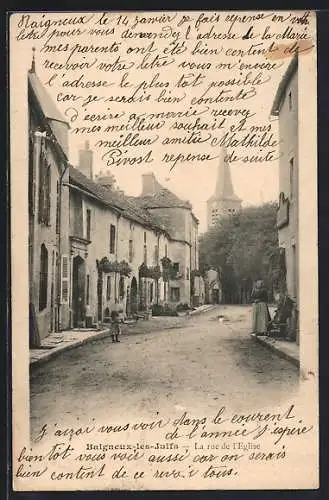 Baigneux le 14 janvier je fais réponse en votre
lettre pour vous demandez l'adresse de la Marie
mes parents ont été bien content de
recevoir votre lettre vous m'enverré
l'adresse le plus tot possible
car je serais bien contente
d'écrire a marie recevez
mes meilleur souhait et mes
meilleur amitié Mathilde
Pivost reponse de suite
Baigneux-les-Juifs — La rue de l'Eglise
J'aizai vous voir dans le courent
de l'année j'espere
bientot tous vous voir aussi car on serais
bien content de ce revoir tous.